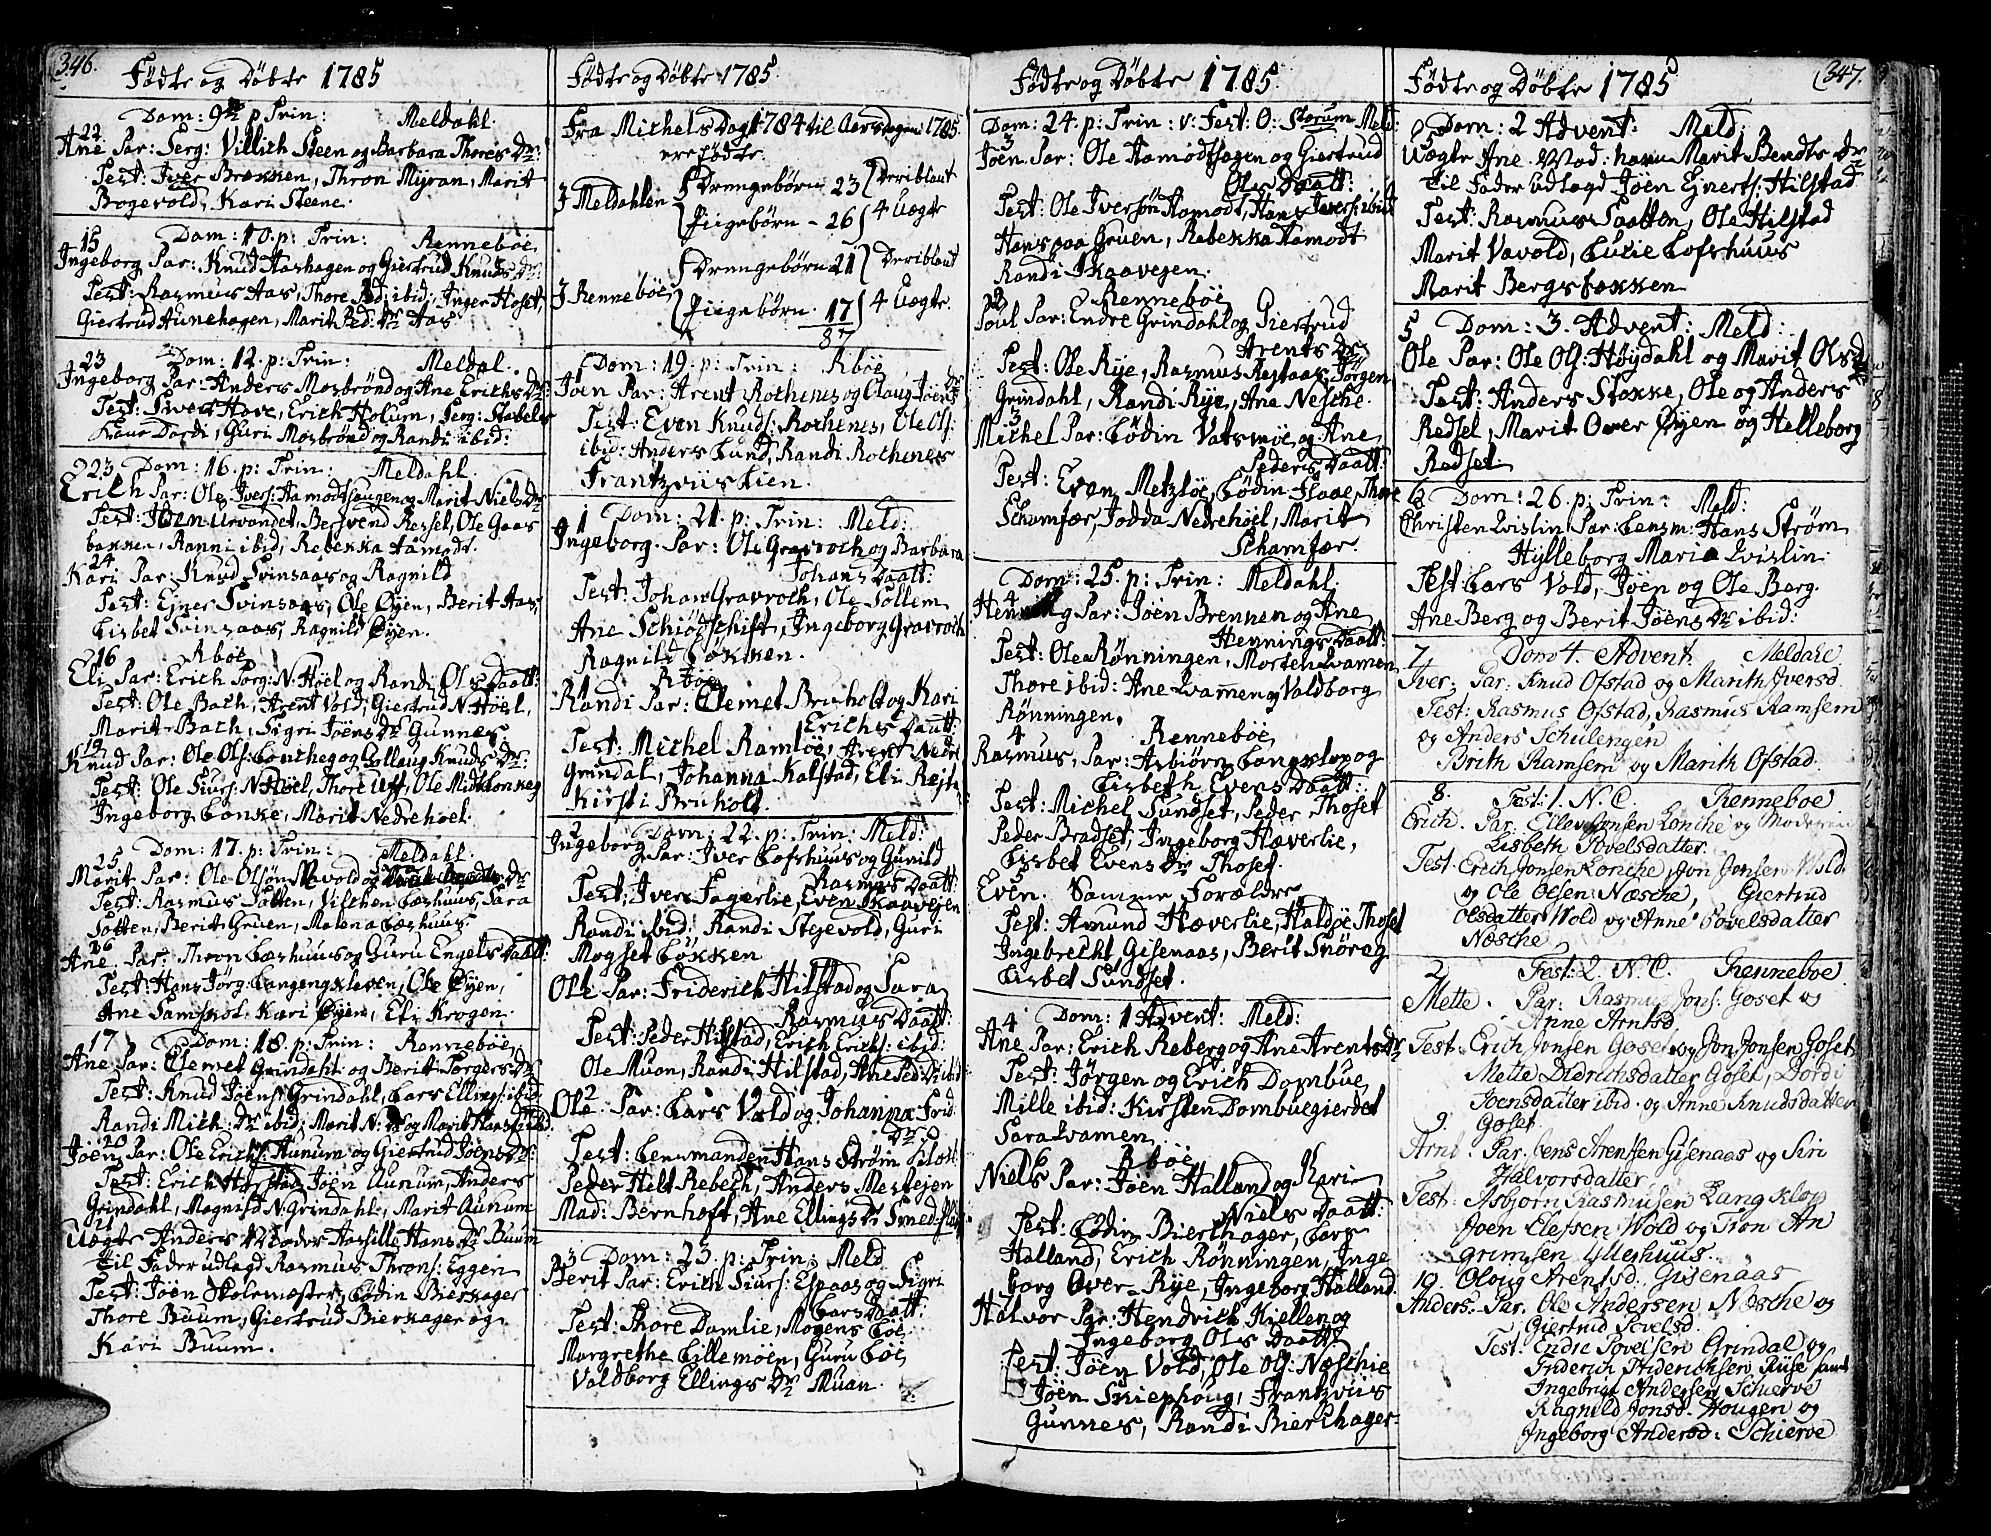 346.
Födte og Döbte 1785
Dom: 9de p Trin: Meldahl.
22
Ane Par: Serg: Villich Steen og Barbara Thores Dr:
Test: Iver Brekken, Thron Myran, Marit
Bogevold, Kari Steene.
15 Dom: 10. p: Trin: Renneböe
Ingeborg Par: Knud Aashagen og Giertrud Knuds Dr:
Test: Rasmus Aas, Thore Ped: ibid:, Inger Hoset,
Giertrud Aunehagen, Marit Ped: Dr Aas
23 Dom: 12. p: Trin: Meldal.
Ingeborg Par: Anders Mosbrönd og Ane Erichs Dr:
Test: Siver Hove, Erich Holum, Serg: Stabels
Kone Dordi, Guri Mosbrönd og Randi ibid:
23 Dom: 16. p: Trin: Meldahl.
Erich Par: Ole Ivers: Hamodtsaugen og Marit Niels Dr
Test: Joen Urvandet, Bersvend Resset, Ole Gaas
bakken, Ranni ibid, Rebekka Hamodt.
24
Kari Par: Knud Svinsaas og Ragnild
Test: Ejner Svinsaas, Ole Öyen, Berit Aas,
Lisbet Svinsaas, Ragnild Öyen.
16 Rböe
Eli Par: Erich Torg: N: Höel og Randi Ols Daatt:
Test: Ole Bach, Arent Vold, Giertrud N: Höel,
Marit Bach, Sigri Jöens Dr Gunnes
19
Knud Par: Ole Ols: Loncheg og Gollaug Knuds Dr:
Test: Ole Siurs: N: Höel, Thore Uff, Ole Midtlonkeg
Ingeborg Lonke, Marit Nedrehoel.
Dom: 17. p: Trin: Meldahl.
25
Marit Par: Ole Olsön Vavold og Dr
Test: Rasmus Sötten, Vilchen Loeshuus, Sara
Sötten, Berit Gruen, Malena Loeshuus.
26
Ane Par: Thron Loeshuus og Guru Engels Daatt:
Test: Hans Jörg: Langengskleven, Ole Öyen,
Ane Samskot: Kari Öyen, Eli Krogen.
17 Dom: 18. p: Trin: Renneböe
Ane Par: Clemet Grindahl og Berit Torgers Dr
Test: Knud Jöens Grindahl, Lars Ellings: ibid
Randi Mich: Dr ibid, Marit N: og Marit Hans ibid.
20
Jöen Par: Ole Erichs: Aunum og Giertrud Jöens Dr:
Test: Erich Hafstad, Jöen Aunum, Anders
Grindahl, Magnild N: Grindahl, Marit Aunum.
21
Uægte Anders Moder Aasille Hans Dr Buum
til Fader udlagd Rasmus Throns: Eggen
Test: Jöen Skolemester, Lödin Bierkager
Thore Buum, Giertrud Bierkager og
Kari Buum.
Födte og Döbte 1785.
Fra Michels Dag 1784 til Aarsdagen 1785.
ere födte.
I Meldahlen Drengebörn 23 Deriblant
Pigebörn - 26 4 Uægte
I Renneböe Drengebörn 21 Deriblant
Pigebörn. 17 4 Uægte.
87
Dom: 19. p: Trin: Rböe
Joen Par: Arent Rochenes og Olaug Joens Dr
Test: Even Knuds: Rochenes, Ole Ols:
ibid: Anders Lund, Randi Rochenes
Frantzviis Lien.
1 Dom: 21. p: Trin: Meld:
Ingeborg Par: Ole Gravroch og Barbara
Johans Daatt:
Test: Johan Gravroch, Ole Sollem
Ane Schiödschift, Ingeborg Gravroch
Ragnild Löxken.
Rböe
Randi Par: Clemet Bruholt og Kari
Erichs Daatt:
Test: Michel Ramlöe, Arent Nedre
Grindal, Johanna Kalstad, Eli Rejt
Kirsti Bruholt.
2 Dom: 22. p: Trin: Meld:
Ingeborg Par: Iver Lofshuus og Gunild
Rasmus Daatt:
Test: Iver Fagerlie, Even Skaavejen
Randi ibid: Randi Stejevold, Guri
Mogset Lökken
Ole Par: Friderich Hilstad og Sara
Rasmus Daatt:
Test: Peder Hilstad, Erich Erichs: ibid:
Ole Muan, Randi Hilstad, Ane Ped: Dr ibid
2
Ole Par: Lars Vold og Johanna Frid:
Dr
Test: Lensmanden Hans Ström
Peder Helt Rebech, Anders Mestejen
Mad: Bernhoft, Ane Ellings Dr
3 Dom: 23. p: Trin: Meld
Berit Par: Erich Siurs: Espaas og Sigri
Lars Daatt:
Test: Thore Damlie, Mogens Löe
Margrethe Lillemöen, Guru Löe
Valdborg Ellings Dr Muan.
Födte og Döbte 1785.
Dom: 24. p: Trin: v: Fest: O: Storum Meld:
3
Jöen Par: Ole Hamodtsagen og Giertrud
Ols Daatt:
Test: Ole Iversön Hamodt, Hans Ivers: ibid
Hans paa Gruen, Rebekka Hamodt
Randi Skaavejen.
2 Renneböe
Poul Par: Endre Grindahl og Giertrud
Arents Dr
Test: Ole Rye, Rasmus Røstaas, Jörgen
Grindahl, Randi Rye, Ane Nesche.
3
Michel Par: Lödin Vatsmöe og Ane
Peders Daatt:
Test: Even Metzlöe, Lödin Flaae, Thore
Schamfær, Jodda Nedrehöel, Marit
Schamfær.
Dom: 25. p: Trin: Meldahl.
4
Henning Par: Jöen Brennen og Ane
Hennings Daatt:
Test: Ole Rönningen, Morten Kvamen
Thore ibid: Ane Kvamen og Valdborg
Rönningen.
4 Renneböe
Rasmus, Par: Asbiörn Langklop og
Lisbeth Evens Daatt:
Test: Michel Sundset, Peder Thoset
Peder Bradset, Ingeborg Hæverlie,
Lisbet Evens Dr Thoset
Even. Samme Forældre
Test: Amund Hæverlie, Haldoe Thoset
Ingebrecht Gisenaas, Berit Snöreg
Lisbet Sundset.
Dom: 1 Advent: Meld:
4
Ane Par: Erich Reberg og Ane Arents Dr
Test: Jörgen og Erich Dombue
Mille ibid: Kirsten Dombuegierdet
Sara Kvamen
6 Rböe
Niels Par: Jöen Halland og Kari
Niels Daatt:
Test: Lödin Bierchager, Lars
Halland, Erich Rönningen, Inge
borg Over-Rye, Ingeborg Halland.
Halvor Par: Hendrich Kiellen og
Ingeborg Ols Daatt:
Test: Jöen Vold, Ole Ols: Næschie
Jöen Skiephoug, Frantzviis
Gunnes, Randi Bierchager-
347.
Födte og Döbte 1785
Dom: 2 Advent: Meld:
5
Uægte Ane Mod: navn Marit Bendts Dr
til Fader udlagd Jöen Ejnerts: Hilstad
Test: Rasmus Saatten, Ole Hilstad
Marit Vavold, Lucie Lofshuus
Marit Bergsbækken
5 Dom: 3. Advent: Meld:
Ole Par: Ole Ols: Höydahl og Marit Ols Dr
Test: Anders Stokke, Ole og Anders
Redsel, Marit Over Öyen og Helleborg
Redset.
6 Dom: 26. p: Trin: Meld:
Christen Qvislin Par: Lensm: Hans Ström
Hylleborg Maria Qvislin.
Test: Lars Vold, Jöen og Ole Berg.
Ane Berg og Berit Jöens Dr ibid:
7. Dom 4. Advent. Meldale
Iver. Par: Knud Ofstad og Marith Iversd.
Test: Rasmus Ofstad, Rasmus Ramsem
og Anders Schulengen
Brith Ramsem og Marith Ofstad.
8. Fest: 1. N. C. Renneboe
Erich. Par. Ellev Jonsen Lonche og Moderen
Lisbeth Povelsdatter.
Test: Erich Jonsen Lonche, Jon Jonsen Wold
og Ole Olsen Næsche, Giertrud
Olsdatter Wold og Anne Povelsdatter
Næsche
2. Fest: 2. N. C. Renneboe
Mette. Par: Rasmus Jons: Goset og
Anne Arntsd.
Test: Erich Jonsen Goset og Jon Jonsen Goset
Mette Didrichsdatter Goset, Dordi
Joensdatter ibid. og Anne Knudsdatter
9. Goset
Arnt. Par. Jens Arentsen Gisenaas og Siri
Halvorsdatter
Test: Asbjorn Rasmusen Langklop
Joen Elefsen Wold og Tron An
grimsen Ulleshuus.
10. Oloug Arentsd. Gisenaas
Anders. Par. Ole Andersen Næsche og
Giertrud Povelsd.
Test: Endre Povelsen Grindal og
Friderich Friderichsen Riise samt
Ingebrigt Andersen Schierve
Ragnild Jonsd. Hougen og
Ingeborg Andersd: Schierve